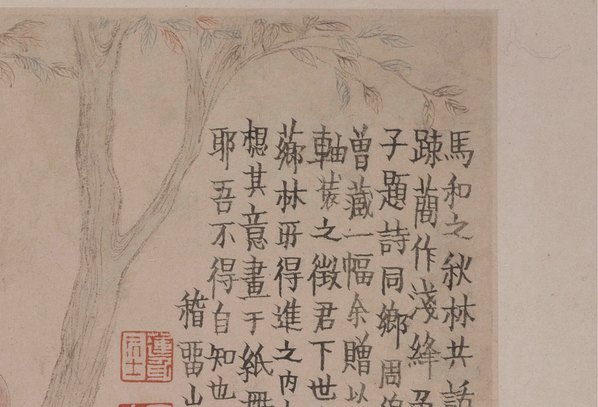 馬和之秋林共話
踈蕳作淺絳
子題詩同鄉周
曾藏一幅余贈以
軸裝之徵君下世
薌林所得進之内
想其意畫于紙
耶吾不得自知也
稽留山